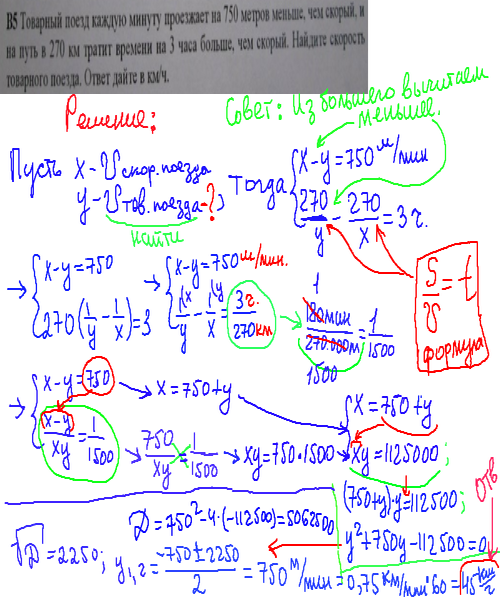 В5 Товарный поезд каждую минуту проезжает на 750 метров меньше, чем скорый, и
на путь в 270 км тратит времени на 3 часа больше, чем скорый. Найдите скорость
товарного поезда. Ответ дайте в км/ч.
Решение:
Совет: Из большего вычитаем
меньшее.
Пусть x - V скор. поезда
y - V тов. поезда - ?
найти
Тогда
{x - y = 750 м/мин
270/y - 270/x = 3 ч.
→ {x - y = 750
270(1/y - 1/x) = 3
→ {x - y = 750 м/мин.
1\x/y - 1\y/x = 3 ч./270 км
→ 180 мин/270.000 м = 1/1500
1
1500
S/v = t
формула
→ {x - y = 750 → x = 750 + y
x - y/xy = 1/1500 → 750/xy = 1/1500 → xy = 750 · 1500 →
{x = 750 + y
xy = 1125000;
(750 + y) · y = 112500;
y² + 750y - 112500 = 0
Отв
D = 750² - 4 · (-112500) = 5062500
√D = 2250; y1,2 = -750 ± 2250/2 = 750 м/мин = 0,75 км/мин · 60 = 45 км/ч